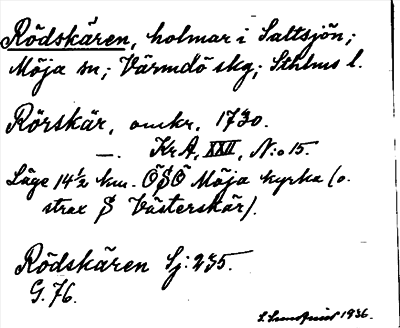 Rödskären, holmar i Saltsjön;
Möja sn; Värmdö skg; Sthlms l.
Rörskär, omkr. 1730.
—. Kr A, XXII, N:o 15.
Läge 14½ km. ÖSÖ Möja kyrka (o.
strax S Västerskär).
Rödskären Sj: 235.
G. 76.
S. Lundquist 1936.